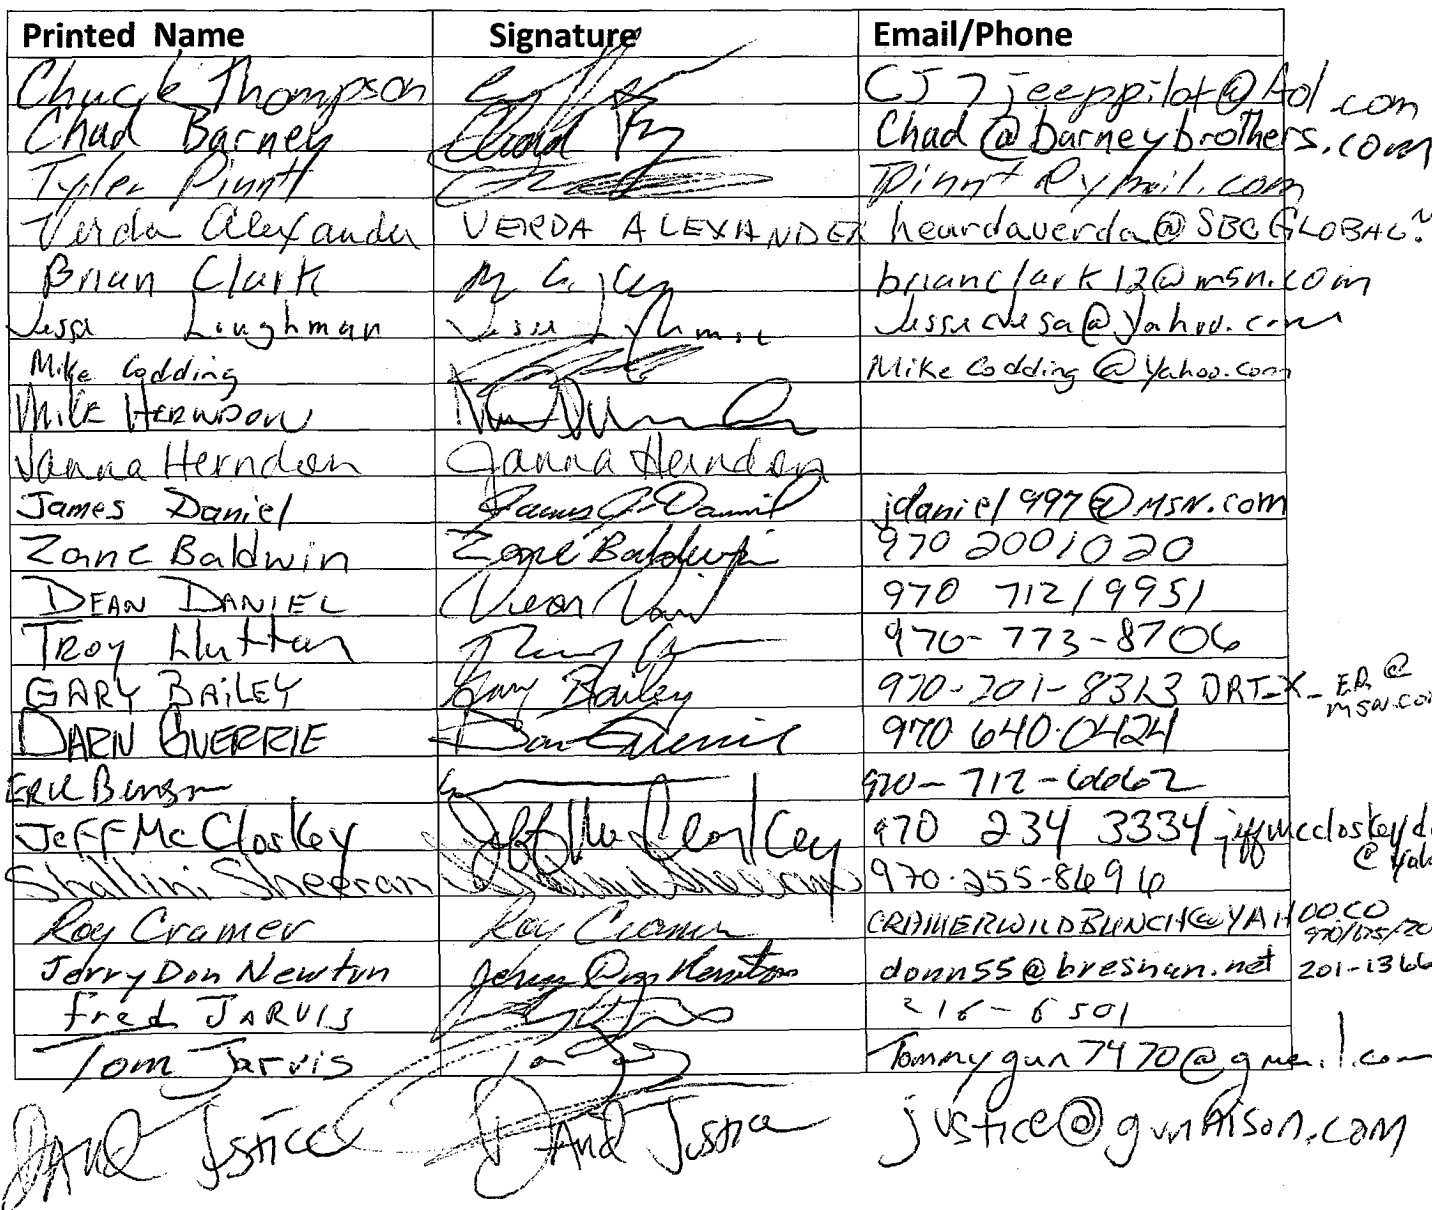 Printed Name Signature Email/Phone
Chuck Thompson CJ7jeeppilot@Aol.com
Chad Barney Chad Chad@barneybrothers.com
Tyler
Verda Alexander VERDA ALEXANDER heardaverda@SBCGLOBAL.
Brian Clark brianclark12@msn.com
Mike Codding Mike Codding@Yahoo.com
MIKE HERNDON
Janna Herndon Janna Herndon
James Daniel James Daniel jdaniel997@MSN.com
Zane Baldwin Zane Baldwin 970 2001020
DEAN DANIEL Dean 970 712/9951
TROY 970-773-8706
GARY BAILEY Gary Bailey 970-201-8313 DRT-X- ER@
msn.com
DARN GUERRIE 970 640-0424
970-712-6662
Jeff McCloskey Jeff McCloskey 970 234 3334 jeffmccloskeyd
@yah
Shallini Sheeran 970-255-8696
Roy Cramer Roy Cramer CRAMERWILDBUNCH@YAHOOCO
Jerry Don Newton Jerry Don Newton donn55@bresnan.net 201-1366
Fred JARVIS
Tom Jarvis Tommygun7470@gmail.com
Justice Justice justice@gunnison.com